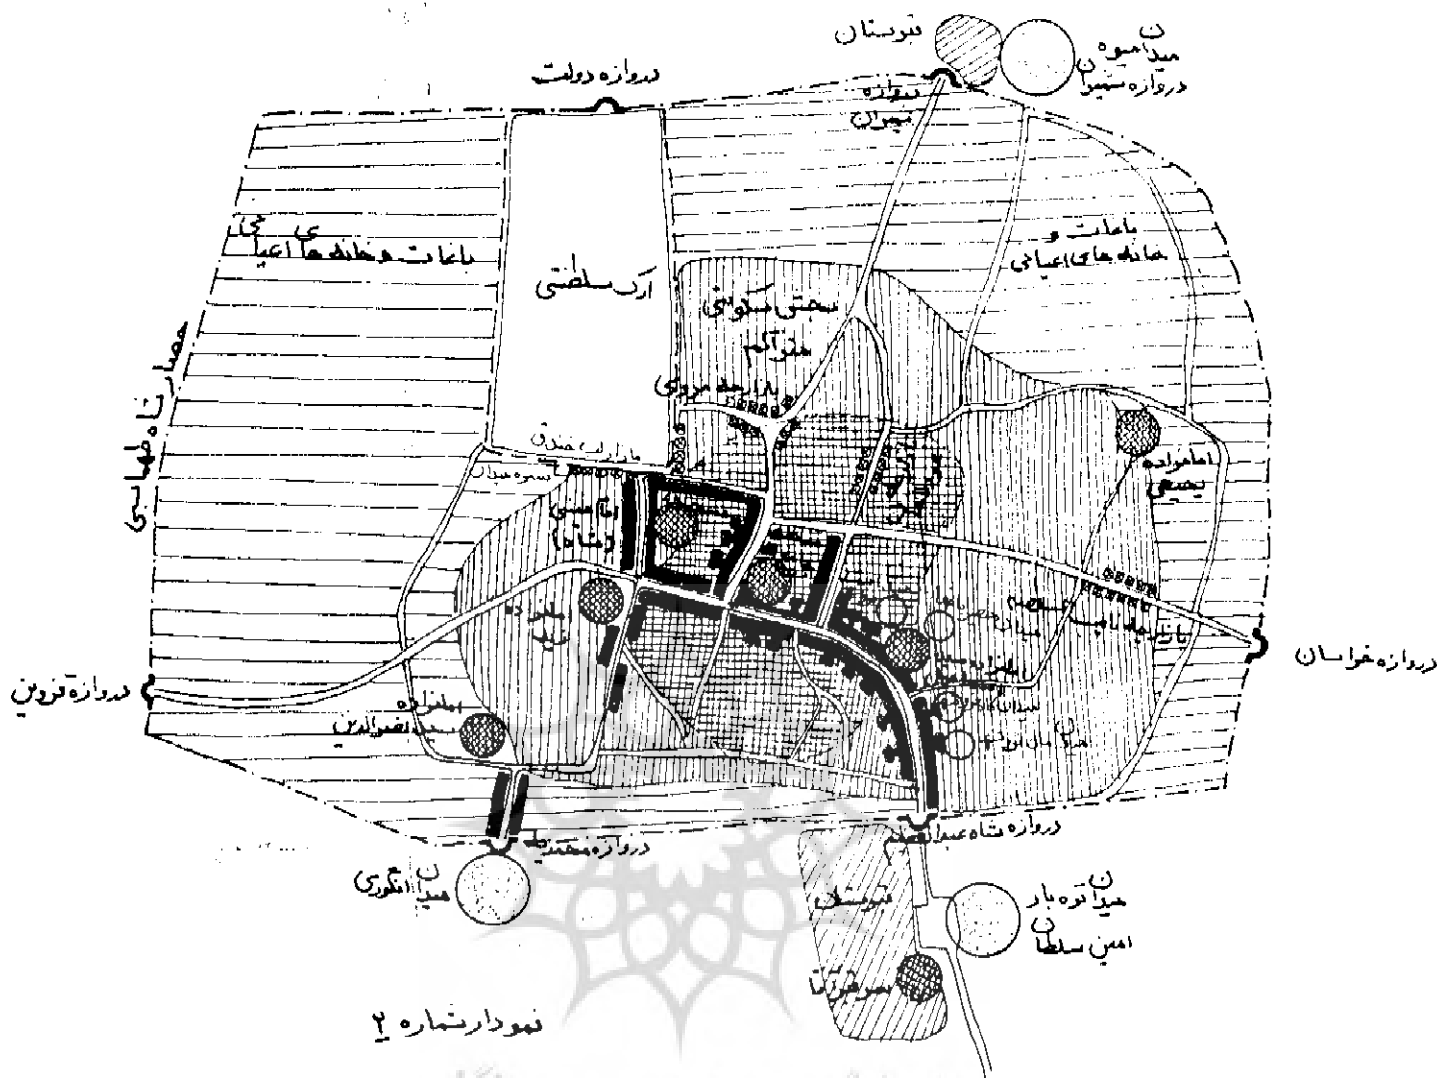 قبرستان
میدان میوه
دروازه شمیران
دروازه دولت
دروازه
شمیران
باغات و خانه های اعیانی
باغات و
خانه های اعیانی
ارک سلطنتی
بخش مسکونی
متراکم
بازارچه مروی
حصار شاه طهماسبی
بازار لب خندق
سبزه میدان
امام خمینی
(شاه)
امامزاده
یحیی
دروازه خراسان
دروازه قزوین
امامزاده
سید نصرالدین
دروازه محمدیه
دروازه شاه عبدالعظیم
میدان انگوری
قبرستان
میدان تره بار
امین سلطان
سر قبر آقا
نمودار شماره ۲